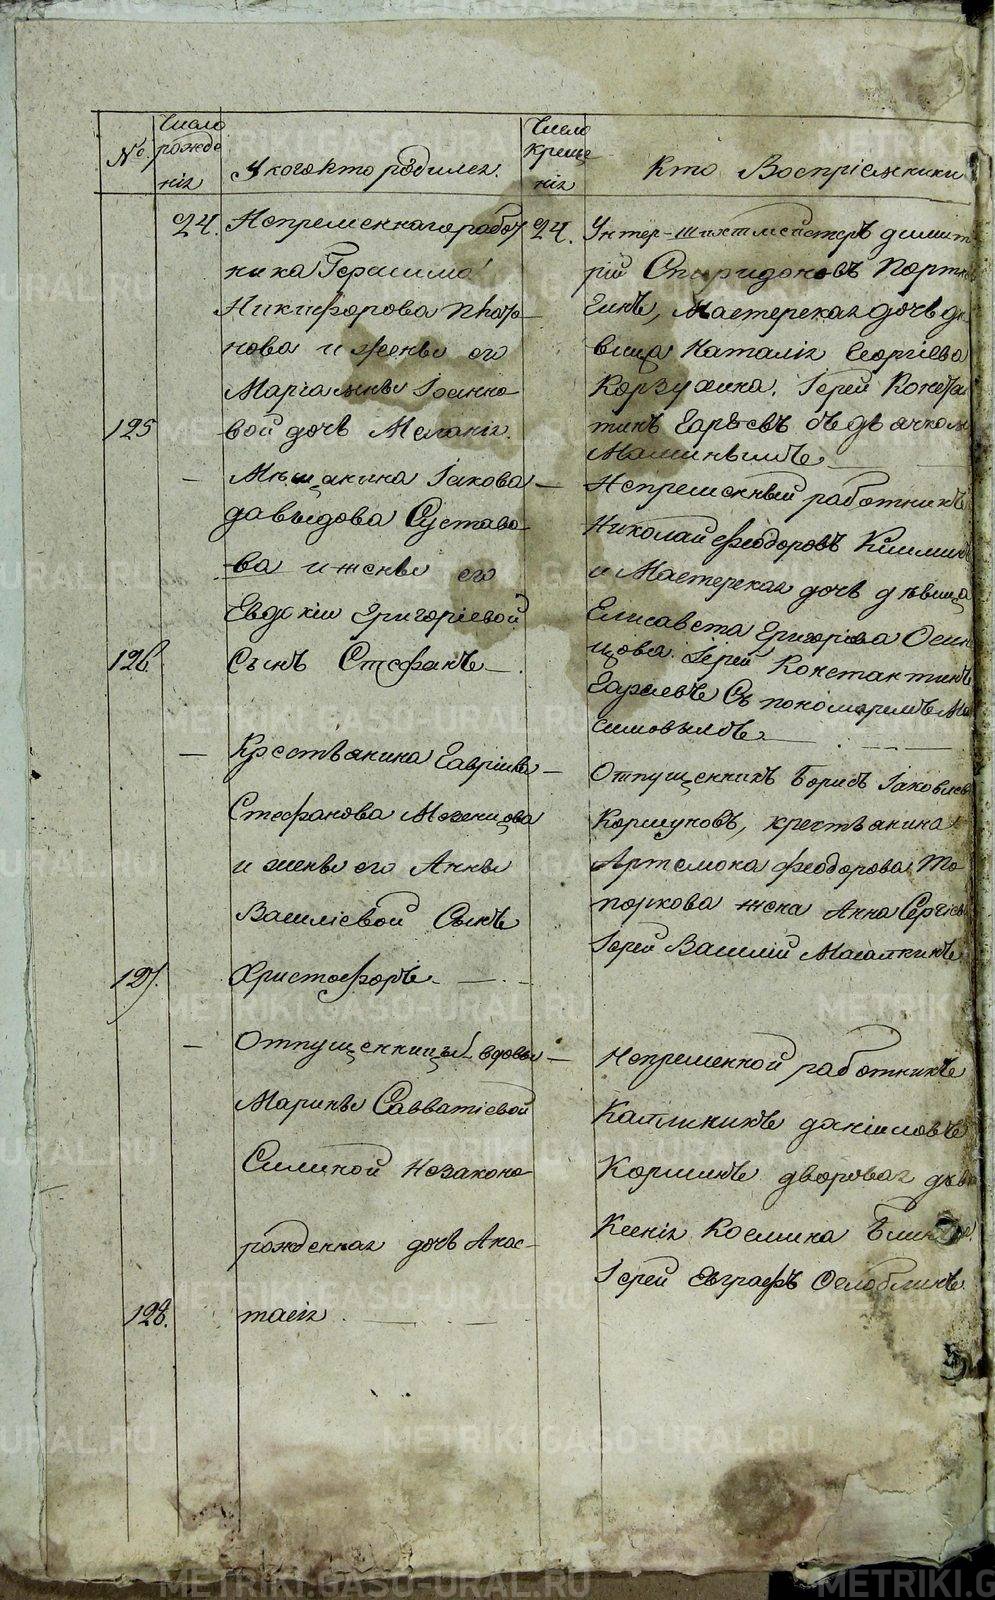 №
Число рождения
У кого кто родился.
Число крещения
Кто Восприемники
24. Непременнаго работ
ника Герасима
Никифорова
нова и жены его
Маріамны Іоанно
125 вой дочь Меланія.
24. Унтер-шихтмейстеръ Димит
рій Спиридоновъ
гинъ, Мастерская дочь дѣ
вица Наталія Георгіева
Корзухина. Іерей Конста
тинъ съ дьячкомъ
Маминымъ
Мѣщанина Іакова
Давыдова Суставо
ва и жены его
Евдокіи Григоріевой
126 Сынъ Стефанъ
Непременный работникъ
Николай Феодоровъ
и Мастерская дочь дѣвица
Елисавета Григоріева Осин
цова. Іерей Константинъ
Съ пономаремъ
симовымъ
Крестьянина Гавріила
Стефанова
и жены его Анны
Василіевой Сынъ
127. Христофоръ
Отпущенникъ Борисъ Іаковлев
Коршуновъ, крестьянина
Артемона Феодорова То
поркова жена Анна Сергіев
Іерей Василій
Отпущенницы вдовы
Марины Савватіевой
Силиной Незаконо
рожденная дочь Анас
128. тасія
Непременной работникъ
Каллиникъ Даніиловъ
Коршинъ дворовая дѣв
Ксенія Космина
Іерей Евграфъ Ослоблинъ